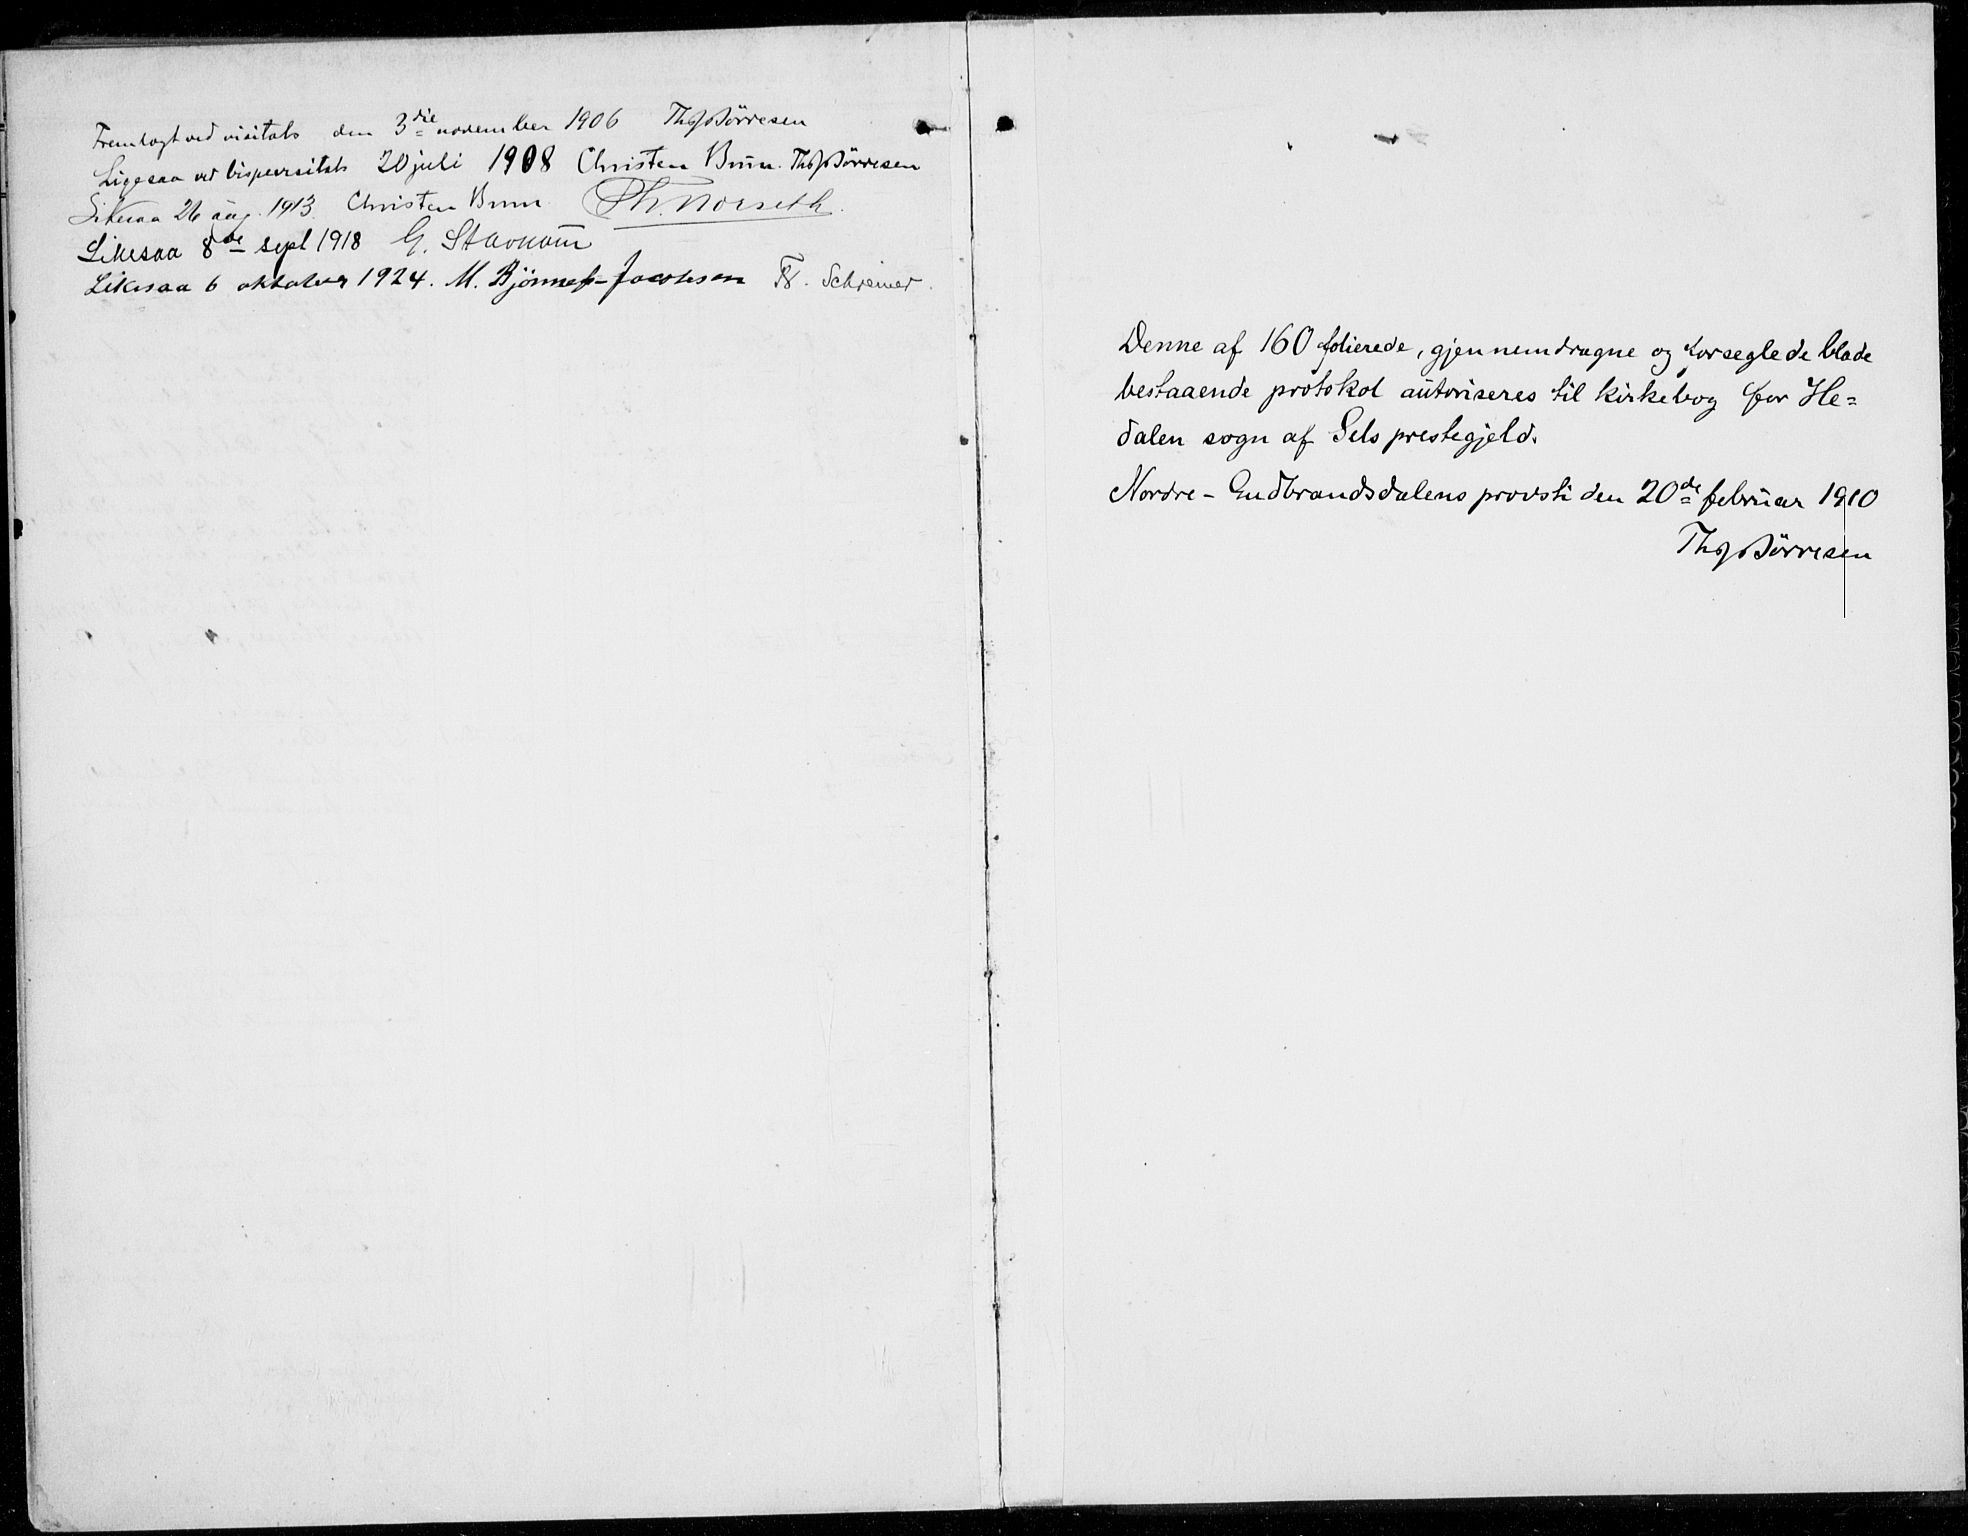 Fremlagt ved visitats den 3die november 1906 Th Börresen
Ligesaa ved bispevisitats 20 juli 1908 Christen Brun. Th Börresen
Likesaa 26 aug. 1913. Christen Brun Th. Norseth.
Likesaa 8de sept 1918 G. Stavnam
Likesaa 6 oktober 1924. M. Bjönnes-Jacobsen Fr. Schreiner.
Denne af 160 folierede, gjennemdragne og forseglede blade
bestaaende protokol autoriseres til kirkebog for He=
dalen sogn af Sels prestegjeld.
Nordre-Gudbrandsdalens provsti den 20de februar 1910
Th Börresen